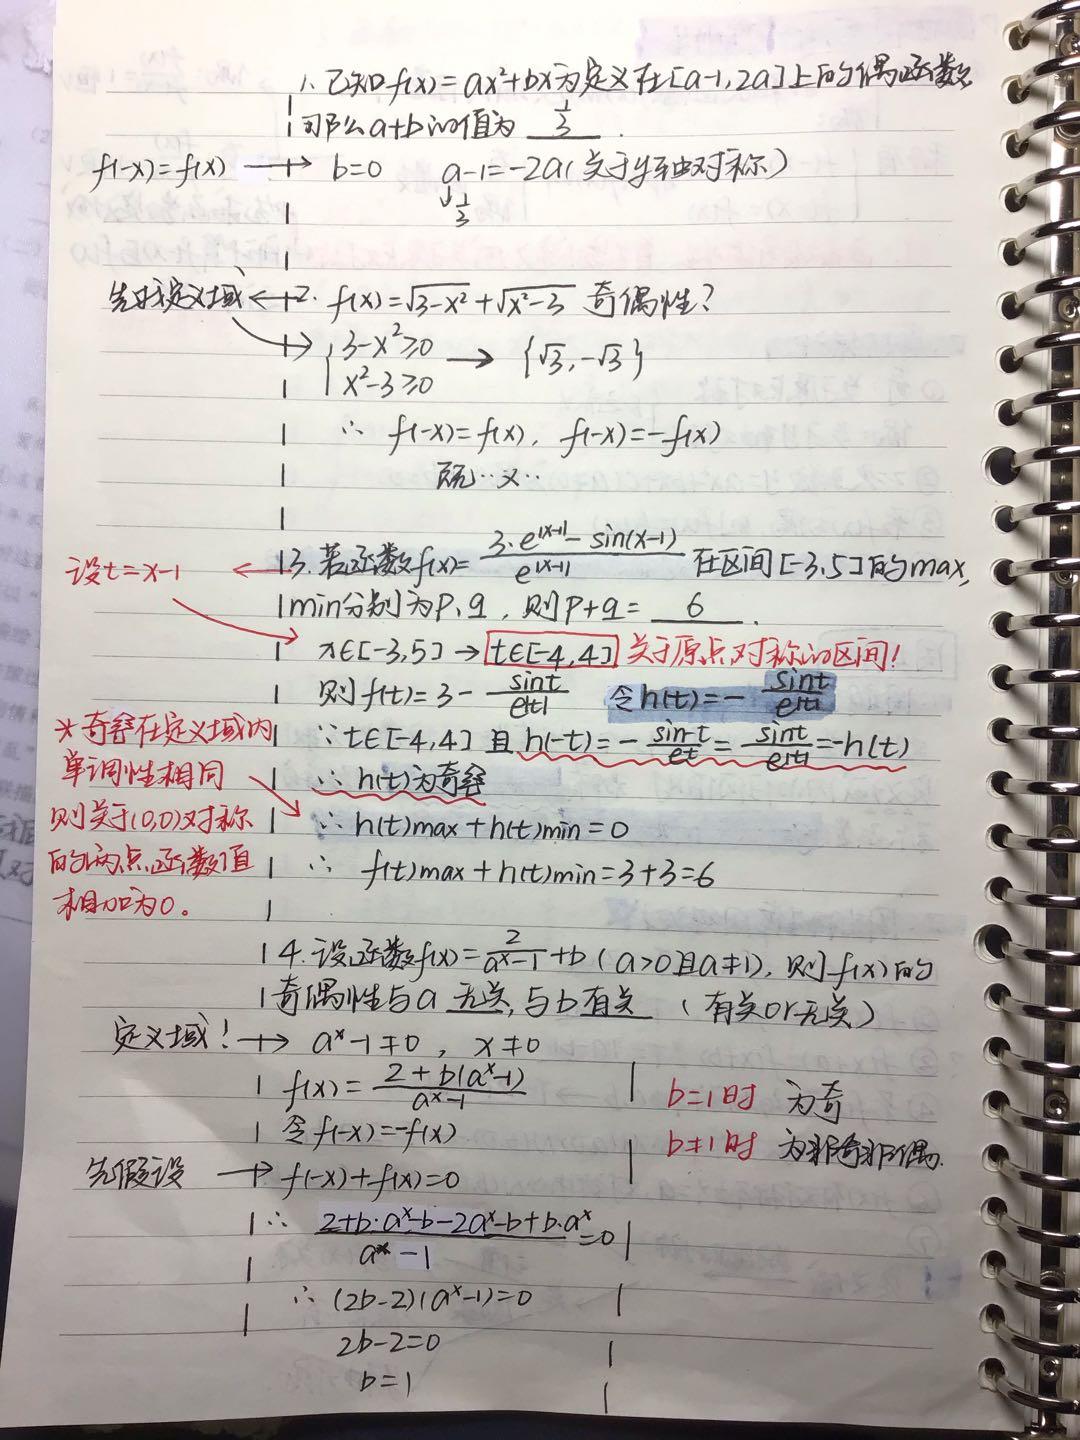 1. 已知f(x)=ax²+bx为定义在[a-1,2a]上的偶函数
那么a+b的值为 1/3 .
f(-x)=f(x) → b=0 a-1=-2a(关于y轴对称)
↓
1/3
先求定义域 ← 2. f(x)=√(3-x²)+√(x²-3) 奇偶性?
→ { 3-x²≥0 → {√3,-√3}
x²-3≥0
∴ f(-x)=f(x), f(-x)=-f(x)
既··又··
设t=x-1 ← 3. 若函数f(x)=(3·e^|x-1|-sin(x-1))/e^|x-1| 在区间[-3,5]的max,
min分别为p、q, 则p+q= 6 .
x∈[-3,5]→t∈[-4,4] 关于原点对称的区间!
则f(t)=3-sint/e^|t| 令h(t)=-sint/e^|t|
∵t∈[-4,4]且h(-t)=-sin-t/et=sint/e^|t|=-h(t)
∴h(t)为奇函
*奇函在定义域内
单调性相同
则关于(0,0)对称
的两点,函数值
相加为0。
∴h(t)max+h(t)min=0
∴ f(t)max+h(t)min=3+3=6
4. 设函数f(x)=2/(a^x-1)+b(a>0且a≠1), 则f(x)的
奇偶性与a 无关, 与b 有关 (有关or无关)
定义域! → a^x-1≠0, x≠0
f(x)=(2+b(a^x-1))/(a^x-1)
令f(-x)=-f(x)
先假设 → f(-x)+f(x)=0
∴ (2+b·a^x-b-2a^x-b+b·a^x)/(a^x-1)=0
∴(2b-2)(a^x-1)=0
2b-2=0
b=1
b=1时 为奇
b≠1时 为非奇非偶.